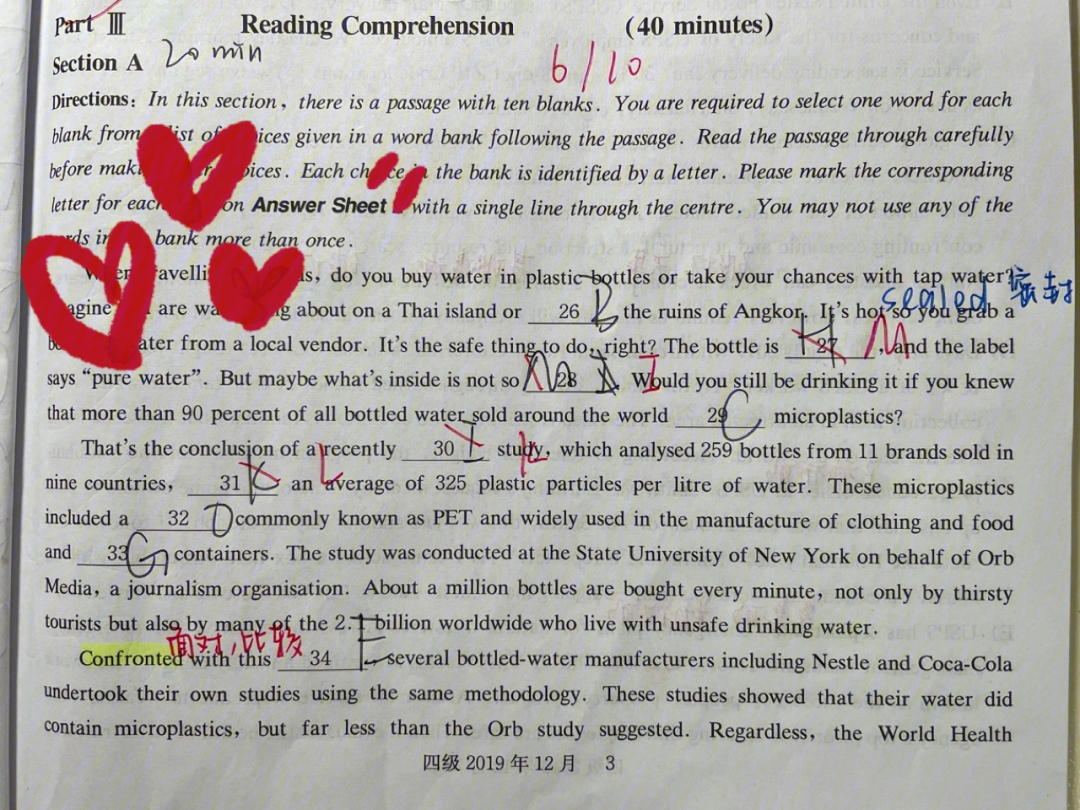 Part Ⅲ Reading Comprehension (40 minutes)
Section A 20 min 6/10
Directions: In this section, there is a passage with ten blanks. You are required to select one word for each
blank from list of ices given in a word bank following the passage. Read the passage through carefully
before ices. Each the bank is identified by a letter. Please mark the corresponding
letter for each on Answer Sheet with a single line through the centre. You may not use any of the
in bank more than once.
do you buy water in plastic bottles or take your chances with tap water?
are about on a Thai island or 26 B the ruins of Angkor. It's hot so you grab a
sealed 密封
from a local vendor. It's the safe thing to do, right? The bottle is H 27 M, and the label
says "pure water". But maybe what's inside is not so 28 I. Would you still be drinking it if you knew
that more than 90 percent of all bottled water sold around the world 29 C microplastics?
That's the conclusion of a recently 30 I L study, which analysed 259 bottles from 11 brands sold in
nine countries, 31 K an average of 325 plastic particles per litre of water. These microplastics
included a 32 D commonly known as PET and widely used in the manufacture of clothing and food
and 33 G containers. The study was conducted at the State University of New York on behalf of Orb
Media, a journalism organisation. About a million bottles are bought every minute, not only by thirsty
tourists but also by many of the 2.1 billion worldwide who live with unsafe drinking water.
面对,比较
Confronted with this 34 E several bottled-water manufacturers including Nestle and Coca-Cola
undertook their own studies using the same methodology. These studies showed that their water did
contain microplastics, but far less than the Orb study suggested. Regardless, the World Health
四级 2019 年 12 月 3